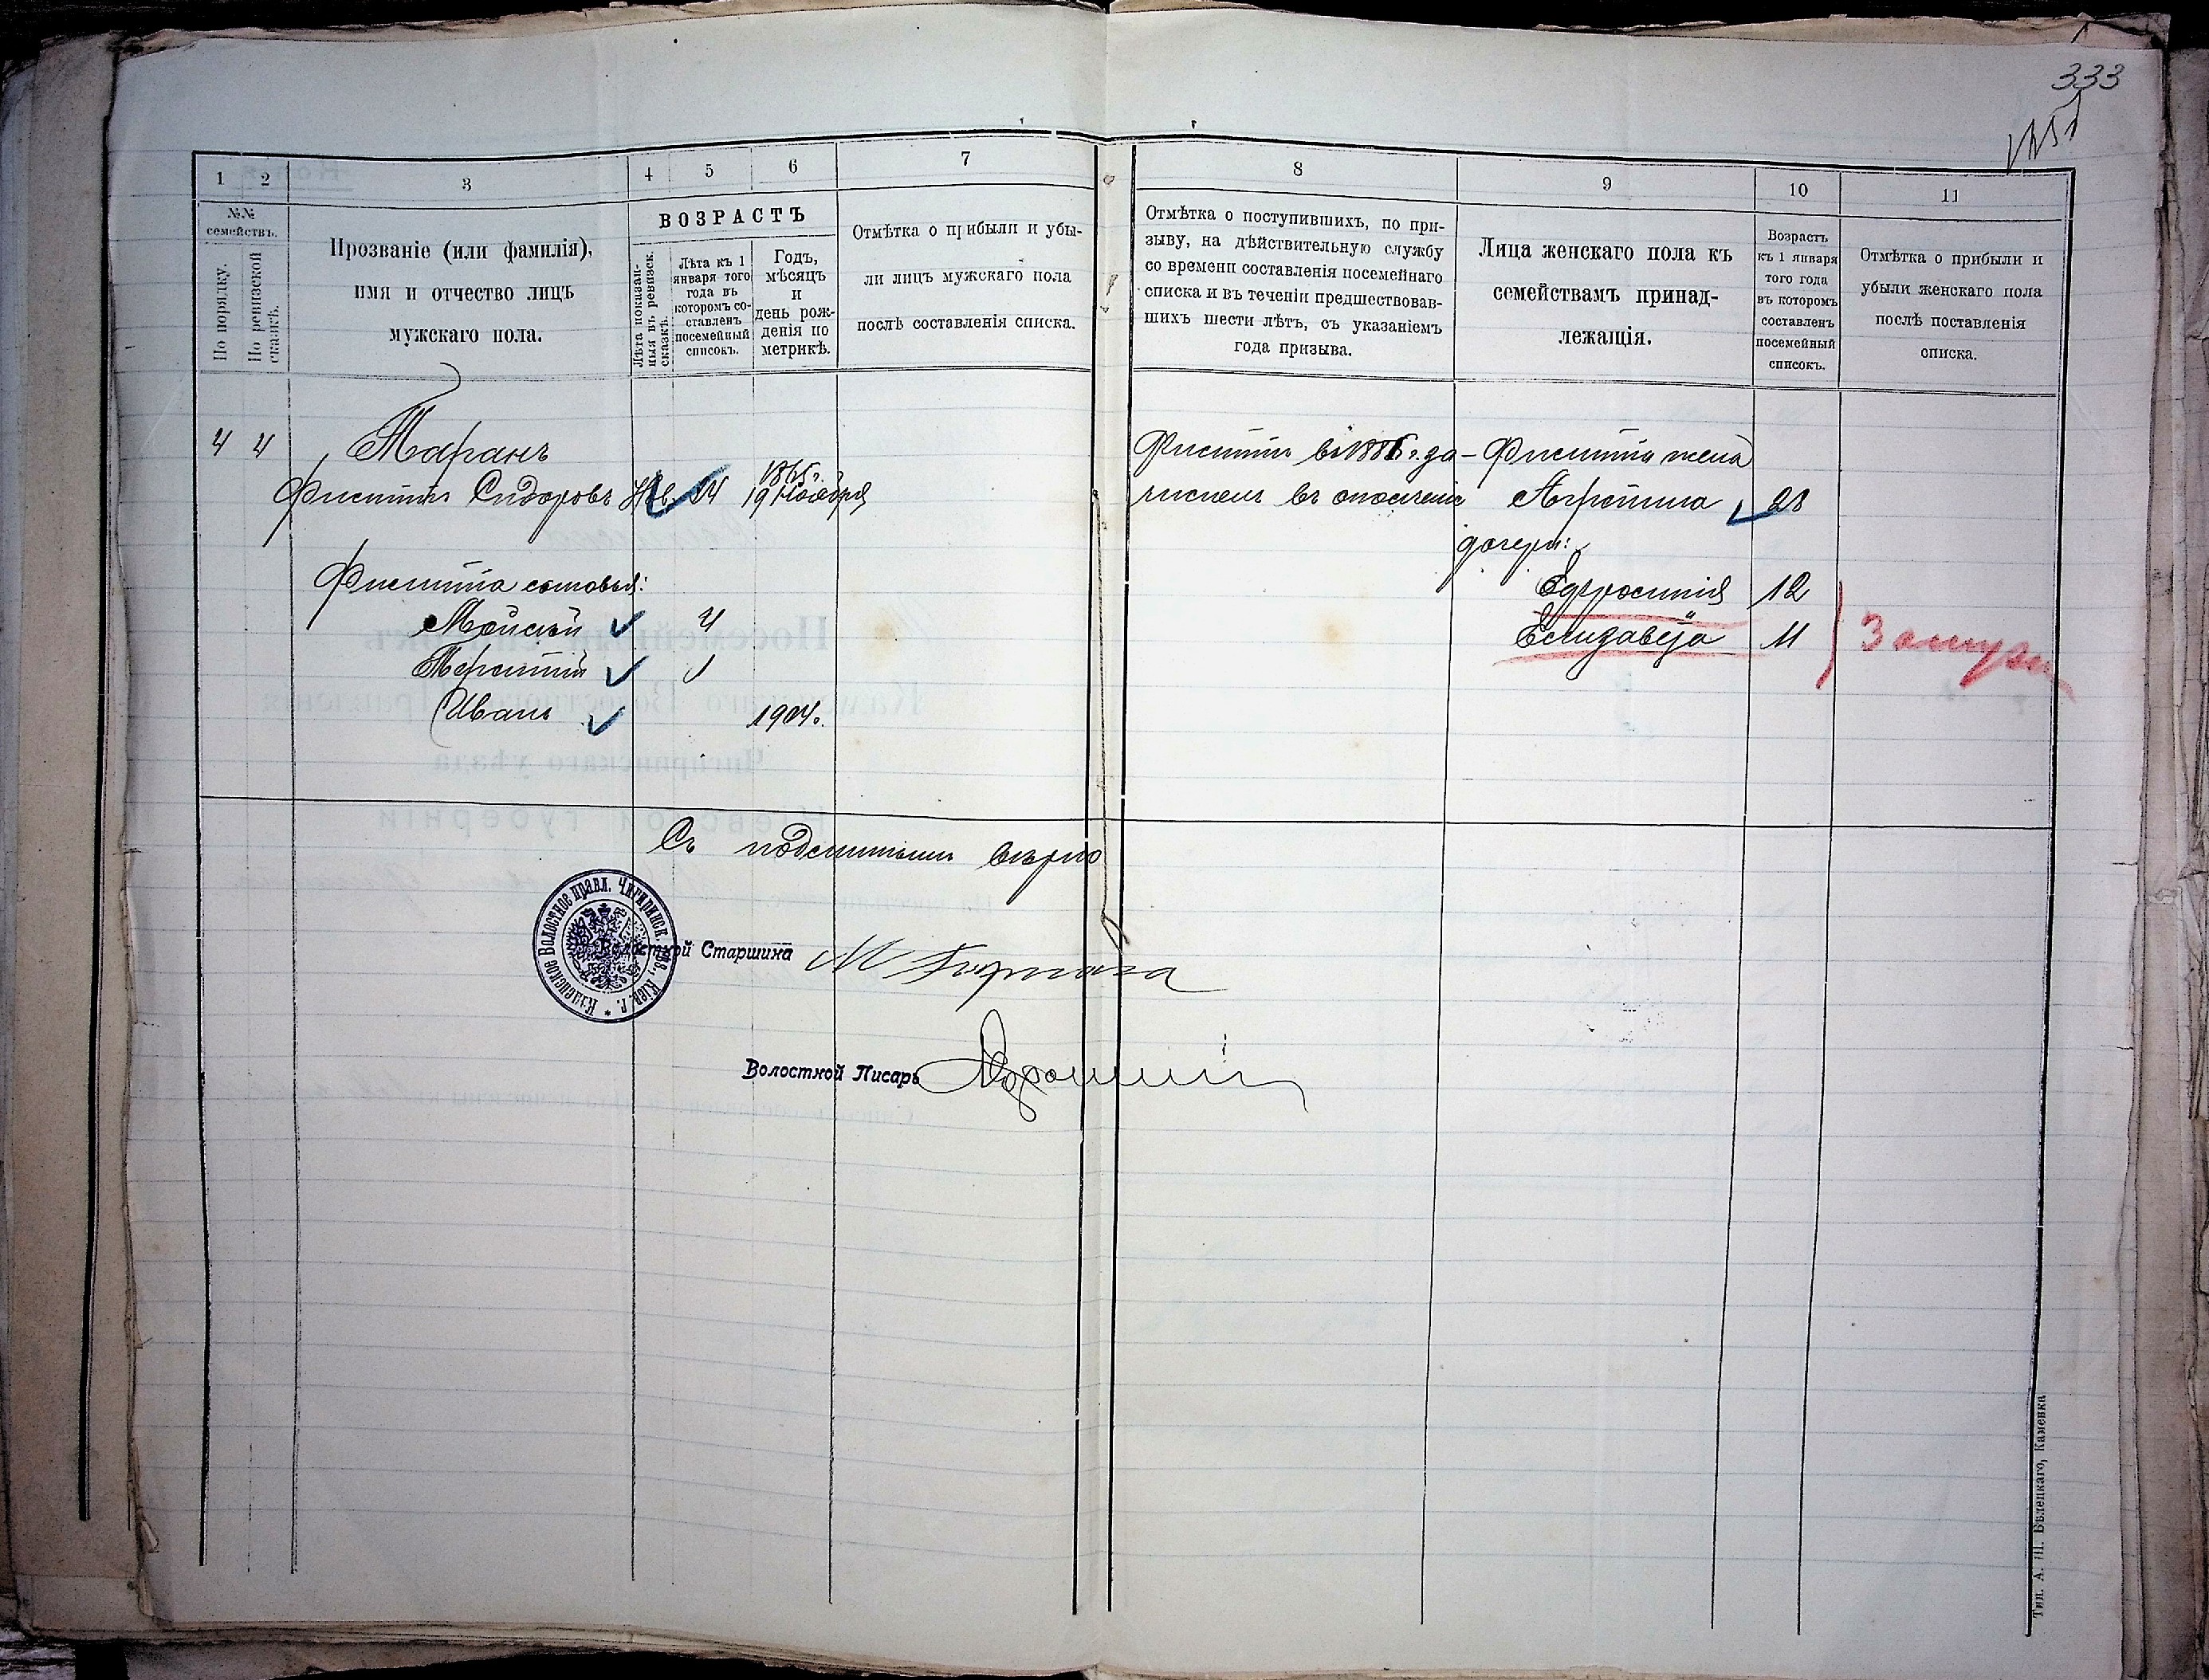 333
1 2 3 4 5 6 7 8 9 10 11
№№ семействъ.
По порядку.
По ревизской сказкѣ.
Прозваніе (или фамилія),
имя и отчество лицъ
мужскаго пола.
ВОЗРАСТЪ
Лѣта показан-
ныя въ ревизск.
сказкѣ.
Лѣта къ 1
января того
года въ
которомъ со-
ставленъ
посемейный
списокъ.
Годъ,
мѣсяцъ
и
день рож-
денія по
метрикѣ.
Отмѣтка о прибыли и убы-
ли лицъ мужскаго пола
послѣ составленія списка.
Отмѣтка о поступившихъ, по при-
зыву, на дѣйствительную службу
со времени составленія посемейнаго
списка и въ теченіи предшествовав-
шихъ шести лѣтъ, съ указаніемъ
года призыва.
Лица женскаго пола къ
семействамъ принад-
лежащія.
Возрастъ
къ 1 января
того года
въ которомъ
составленъ
посемейный
списокъ.
Отмѣтка о прибыли и
убыли женскаго пола
послѣ поставленія
списка.
4 4 Таранъ
Сидоровъ 19 Ноября
за-
численъ въ ополченіе
жена
28
дочери:
Ефросинія 12
Елизавета 11
сыновья:
Мойсей 4
Терентій 1
Иванъ 1904.
Съ подлиннымъ вѣрно
Волостной Старшина
Каменское Волостное правл. Чигиринск. уѣз., Кіев. г.
Волостной Писарь
Тип. А. Ш. Бѣлецкаго, Каменка